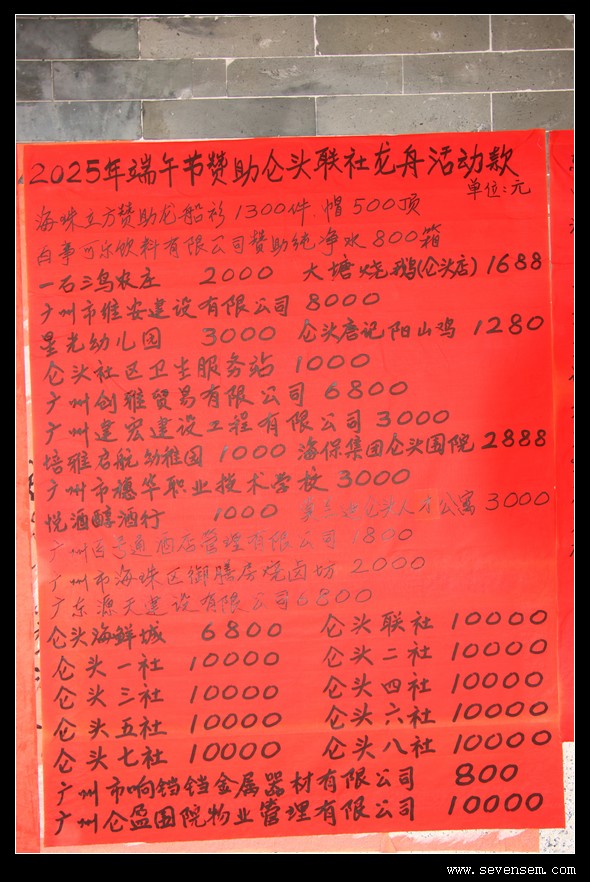 2025年端午节赞助仑头联社龙舟活动款
单位:元
海珠立方赞助龙船衫1300件.帽500顶
百事可乐饮料有限公司赞助纯净水800箱
一石三鸟农庄 2000 大塘烧鹅(仑头店) 1688
广州市维安建设有限公司 8000
星光幼儿园 3000 仑头唐记阳山鸡 1280
仑头社区卫生服务站 1000
广州创雅贸易有限公司 6800
广州建宏建设工程有限公司 3000
培雅启航幼稚园 1000 海保集团仑头围院 2888
广州市穗华职业技术学校 3000
悦酒醇酒行 1000 仑头人才公寓 3000
广州百号通酒店管理有限公司 1800
广州市海珠区御膳房烧卤坊 2000
广东源天建设有限公司 6800
仑头海鲜城 6800 仑头联社 10000
仑头一社 10000 仑头二社 10000
仑头三社 10000 仑头四社 10000
仑头五社 10000 仑头六社 10000
仑头七社 10000 仑头八社 10000
广州市响铛铛金属器材有限公司 800
广州仑盈围院物业管理有限公司 10000
www.sevensem.com